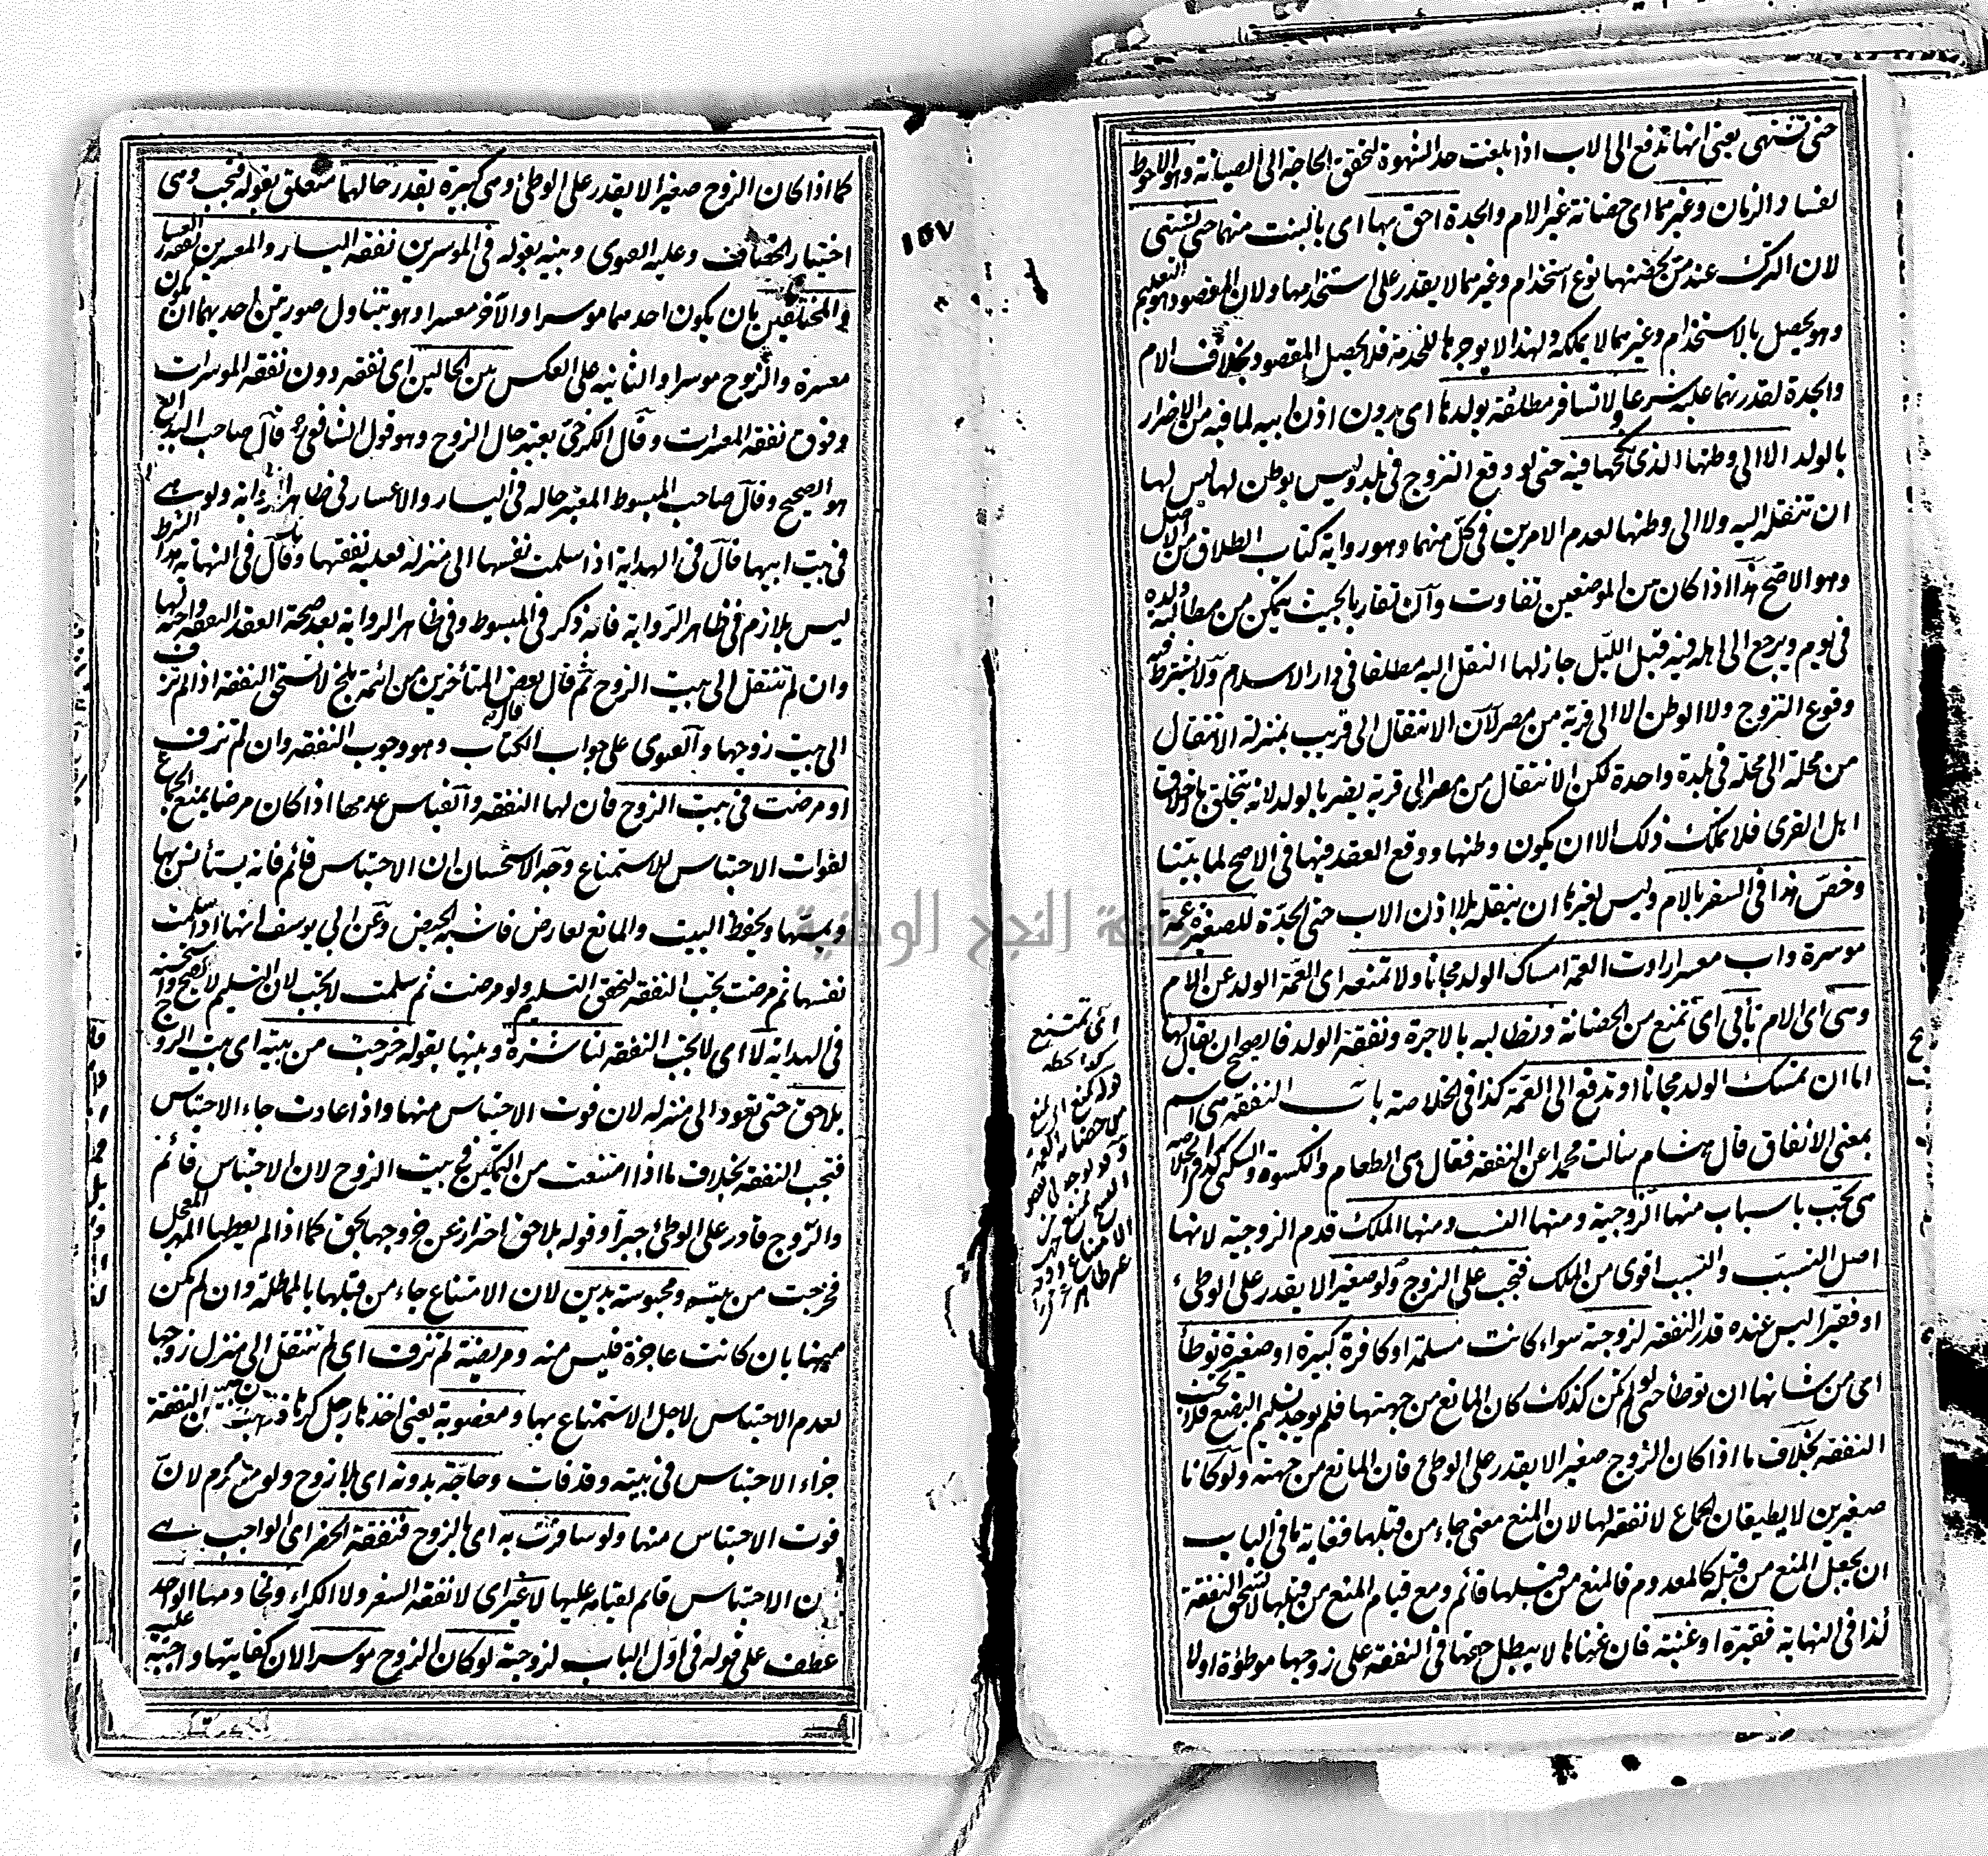 حتى تشتهى يعنى انها تدفع الى الاب اذا بلغت حد الشهوة لتحقق الحاجة الى الصيانة وهو الاحوط
لفساد الزمان وغيرهما اى حضانة غير الام والجدة احق بها اى بالبنت منهما حتى تشتهى
لان الترك عند من يحضنها نوع استخدام وغيرهما لا يقدر على استخدامها ولان المقصود هو التعليم
وهو يحصل بالاستخدام وغيرهما لا يملكه ولهذا لا يوجرها للخدمة فلا يحصل المقصود بخلاف الام
والجدة لقدرتهما عليه شرعا ولا تسافر مطلقة بولدها اى بدون اذن ابيه لما فيه من الاضرار
بالولد الا الى وطنها الذى نكحها فيه حتى لو وقع التزوج فى بلد وليس بوطن لها ليس لها
ان تنقله اليه ولا الى وطنها لعدم الامرين فى كل منهما وهو رواية كتاب الطلاق من الاصل
وهو الاصح هذا اذا كان بين الموضعين تفاوت وان تقاربا بحيث يتمكن من مطالعة ولده
فى يوم ويرجع الى اهله فيه قبل الليل جاز لها النقل اليه مطلقا فى دار الاسلام ولا يشترط فيه
وقوع التزوج ولا الوطن الا الى قرية من مصر لان الانتقال الى قريب بمنزلة الانتقال
من محلة الى محلة فى بلدة واحدة لكن الانتقال من مصر الى قرية يضر بالولد لانه يتخلق باخلاق
اهل القرى فلا تملك ذلك الا ان يكون وطنها ووقع العقد فيها فى الاصح لما بينا
وخص هذا فى السفر بالام وليس لغيرها ان ينقله بلا اذن الاب حتى الجدة للصغيرة عمة
موسرة واب معسر ارادت العمة امساك الولد مجانا ولا تمنعه اى العمة الولد عن الام
وهى اى الام تأبى اى تمنع من الحضانة وتطالبه بالاجرة ونفقة الولد فالصحيح ان يقال لها
اما ان تمسك الولد مجانا او تدفع الى العمة كذا فى الخلاصة باب النفقة هى اسم
بمعنى الانفاق قال هشام سالت محمدا عن النفقة فقال هى الطعام والكسوة والسكنى كذا فى الخلاصة
هى تجب باسباب منها الزوجية ومنها النسب ومنها الملك قدم الزوجية لانها
اصل النسب والنسب اقوى من الملك فتجب على الزوج ولو صغيرا لا يقدر على الوطئ
او فقيرا ليس عنده قدر النفقة لزوجته سواء كانت مسلمة او كافرة كبيرة او صغيرة توطأ
اى من شانها ان توطأ حتى لو لم تكن كذلك كان المانع من جهتها فلم يوجد تسليم البضع فلا تجب
النفقة بخلاف ما اذا كان الزوج صغيرا لا يقدر على الوطئ فان المانع من جهته ولو كانا
صغيرين لا يطيقان الجماع لا نفقة لها لان المنع معنى جاء من قبلها فغاية ما فى الباب
ان يجعل المنع من قبله كالمعدوم فالمنع من قبلها قائم ومع قيام المنع من قبلها لا تستحق النفقة
كذا فى النهاية فقيرة او غنية فان غناها لا يبطل حقها فى النفقة على زوجها موطؤة او لا
اى تمتنع
١٥٧
كما اذا كان الزوج صغيرا لا يقدر على الوطئ وهى كبيرة بقدر حالهما متعلق بقوله فتجب وهى
اختيار الخصاف وعليه الفتوى وبينه بقوله فى الموسرين نفقة اليسار والمعسرين نفقة العسار
والمختلفين بان يكون احدهما موسرا والآخر معسرا وهو يتناول صورتين احديهما ان تكون
معسرة والزوج موسرا والثانية على العكس بين الحالين اى نفقة دون نفقة الموسرات
وفوق نفقة المعسرات وقال الكرخى يعتبر حال الزوج وهو قول الشافعى قال صاحب البدائع
هو الصحيح وقال صاحب المبسوط المعتبر حاله فى اليسار والاعسار فى ظاهر الرواية ولو هى
فى بيت ابيها قال فى الهداية اذا سلمت نفسها الى منزله فعليه نفقتها وقال فى النهاية هذا الشرط
ليس بلازم فى ظاهر الرواية فانه ذكر فى المبسوط وفى ظاهر الرواية بعد صحة العقد النفقة واجبة لها
وان لم تنتقل الى بيت الزوج ثم قال بعض المتأخرين من ائمة بلخ لا تستحق النفقة اذا لم تزف
الى بيت زوجها والفتوى على جواب الكتاب وهو وجوب النفقة وان لم تزف
او مرضت فى بيت الزوج فان لها النفقة والقياس عدمها اذا كان مرضا يمنع الجماع
لفوات الاحتباس للاستمتاع وجه الاستحسان ان الاحتباس قائم فانه يستأنس بها
ويمسها وتحفظ البيت والمانع لعارض فاشبه الحيض وعن ابى يوسف انها اذا سلمت
نفسها ثم مرضت تجب النفقة لتحقق التسليم ولو مرضت ثم سلمت لا تجب لان التسليم لا يصح واستحسنه
فى الهداية لا اى لا تجب النفقة لناشزة وبينها بقوله خرجت من بيته اى بيت الزوج
بلا حق حتى تعود الى منزله لان فوت الاحتباس منها واذا عادت جاء الاحتباس
فتجب النفقة بخلاف ما اذا امتنعت من التمكين فى بيت الزوج لان الاحتباس قائم
والزوج قادر على الوطئ جبرا وقوله بلا حق احتراز عن خروجها بحق كما اذا لم يعطها المهر المعجل
فخرجت من بيته ومحبوسة بدين لان الامتناع جاء من قبلها بالمماطلة وان لم يكن
منها بان كانت عاجزة فليس منه ومريضة لم تزف اى لم تنتقل الى منزل زوجها
لعدم الاحتباس لاجل الاستمتاع بها ومغصوبة يعنى اخذها رجل كرها فذهب لان النفقة
جزاء الاحتباس فى بيته وقد فات وحاجة بدونه اى بلا زوج ولو مع محرم لان
فوت الاحتباس منها ولو سافرت به اى بالزوج فنفقة الحضر اى الواجب هى
لان الاحتباس قائم لقيامه عليها لا غير اى لا نفقة السفر ولا الكراء ولخادمها الواحد
عطف على قوله فى اول الباب لزوجته لو كان الزوج موسرا لان كفايتها واجبة عليه